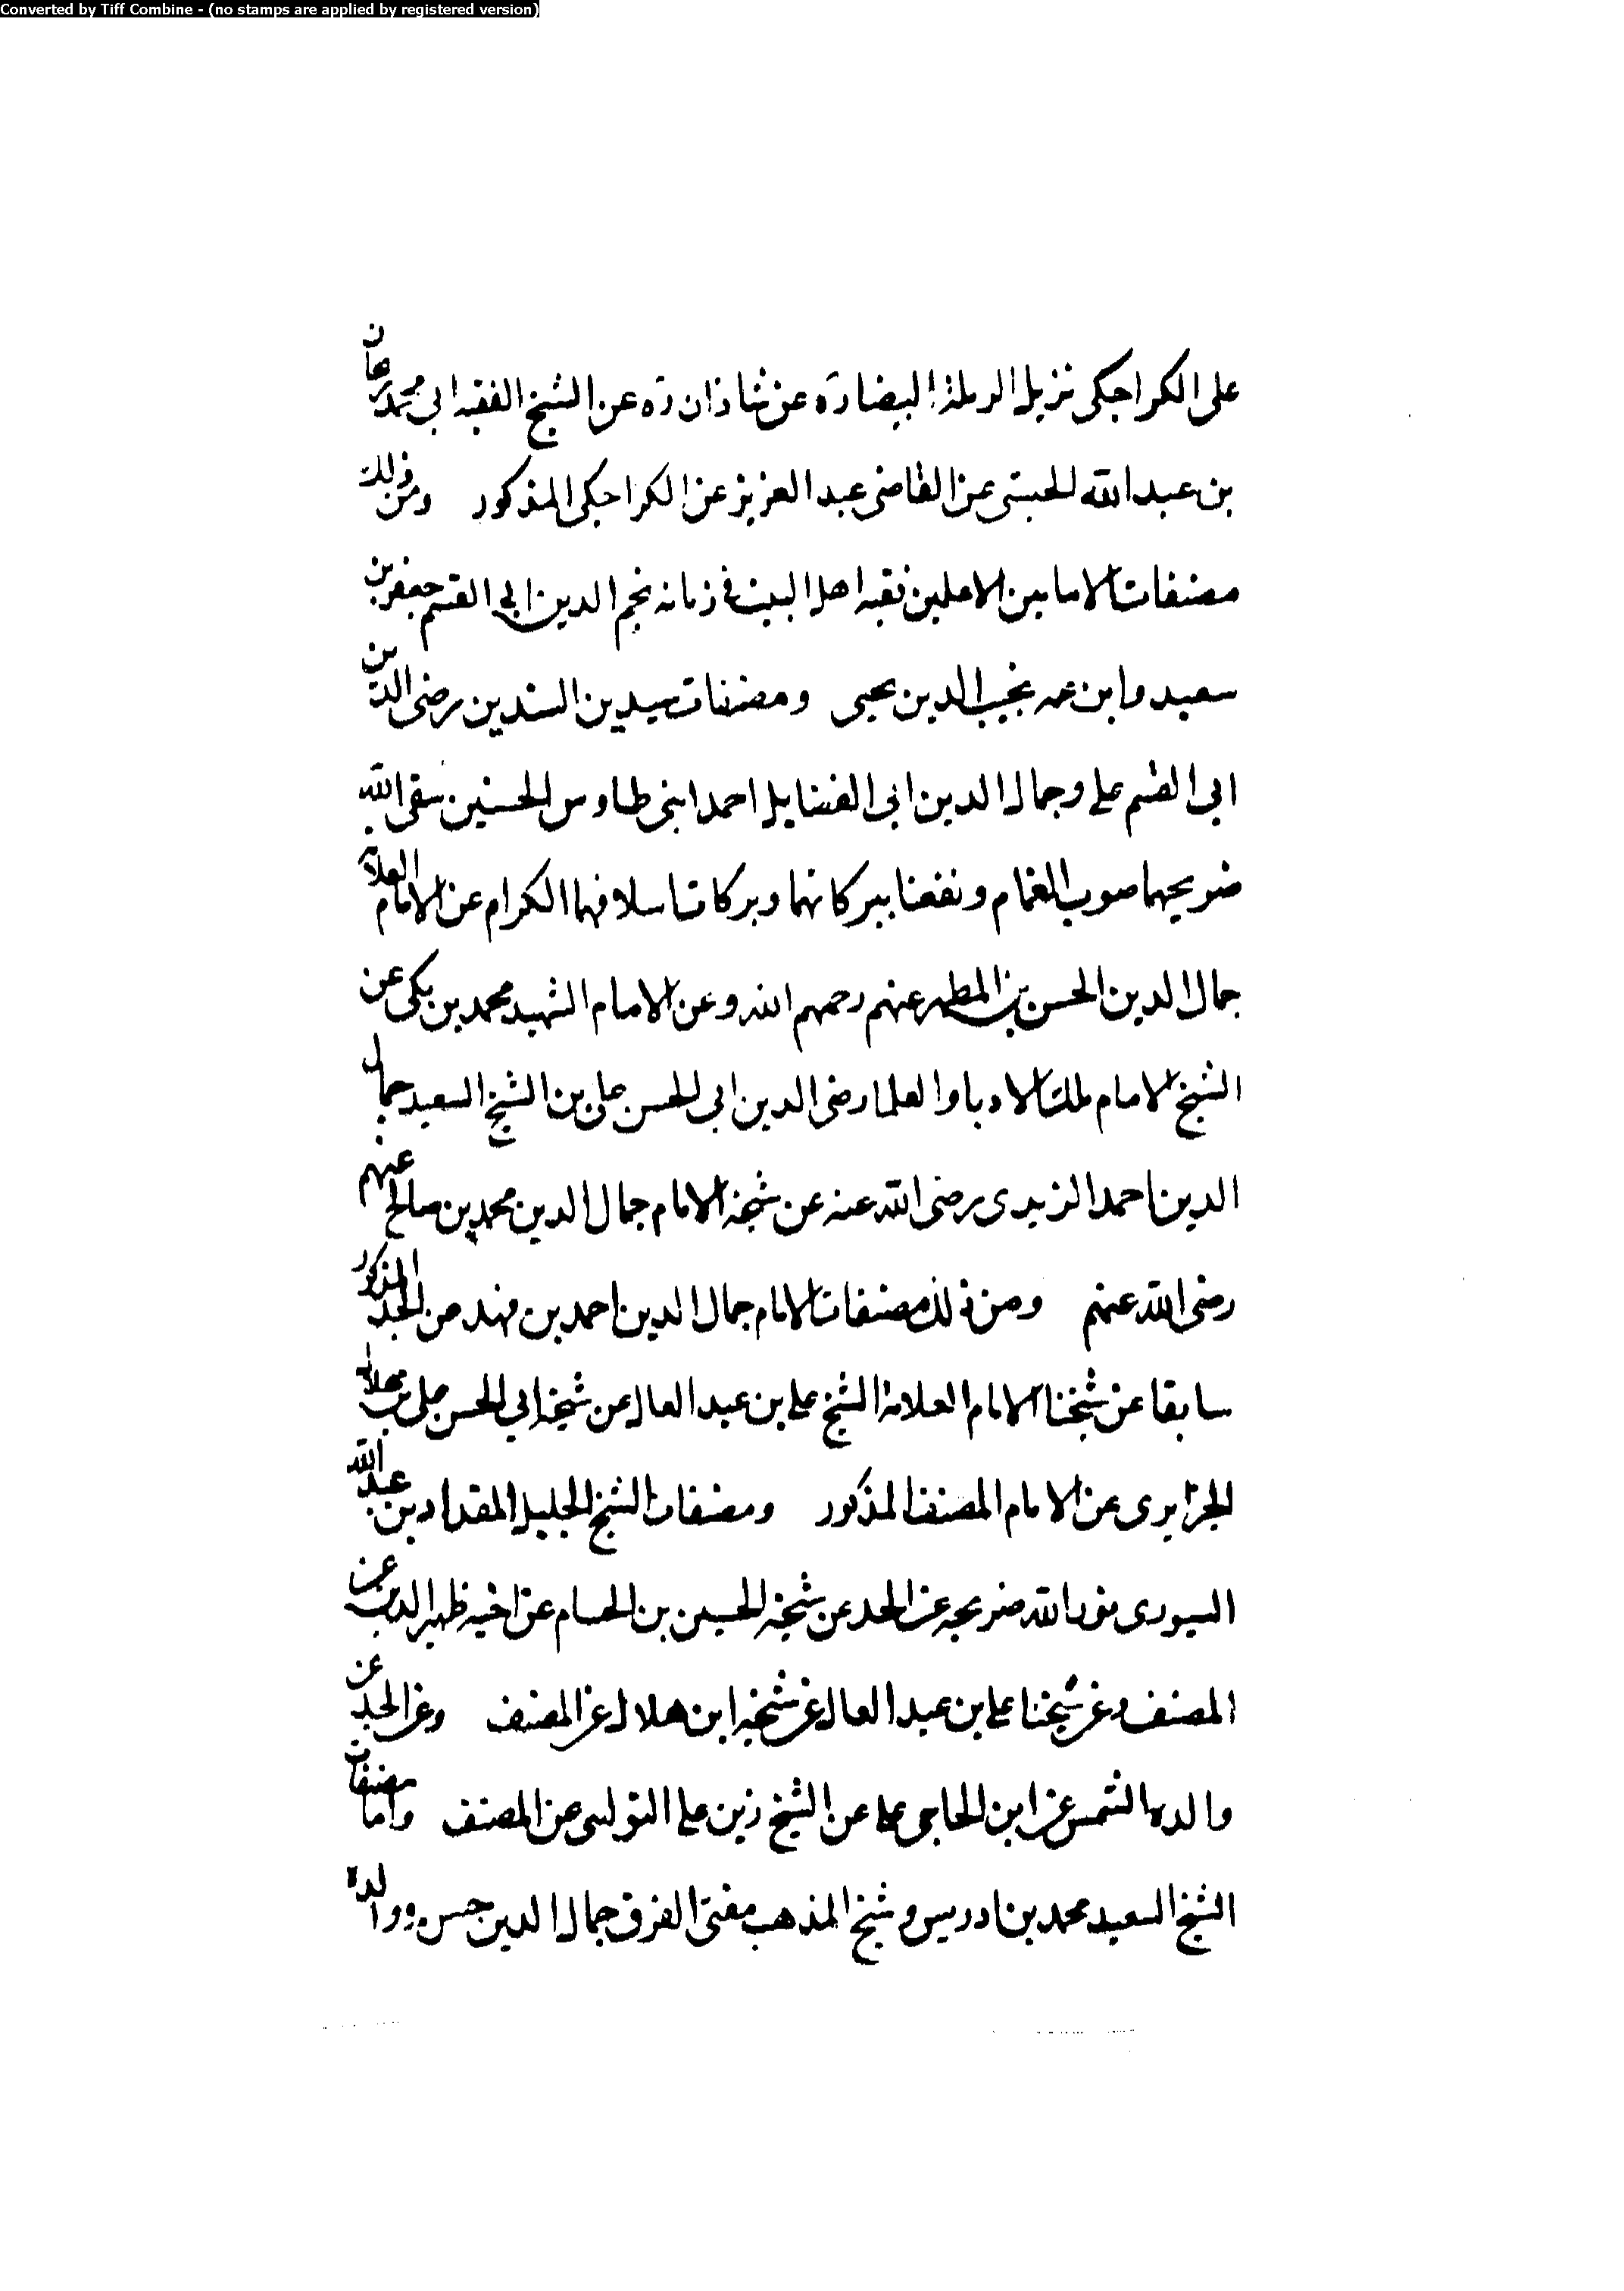 Converted by Tiff Combine - (no stamps are applied by registered version)
على الكراجكى نزيل الرملة البيضا ره عن شاذان ره عن الشيخ الفقيه ابى محمد ريحان
بن عبد الله الحبشى عن القاضى عبد العزيز عن الكراجكى المذكور ومن ذلك
مصنفات الامامين الاعلمين فقيه اهل البيت فى زمانه نجم الدين ابى القسم جعفر بن
سعيد وابن عمه نجيب الدين يحيى ومصنفات سيدين السندين رضى الدين
ابى القسم على وجمال الدين ابى الفضايل احمد ابنى طاوس الحسنين سقى الله
ضريحهما صوب الغمام ونفعنا ببركاتهما وبركات اسلافهما الكرام عن الامام العلامة
جمال الدين الحسن بن المطهر عنهم رحمهم الله وعن الامام الشهيد محمد بن مكى عن
الشيخ الامام ملك الادبا والعلما رضى الدين ابى الحسن على بن الشيخ السعيد جمال
الدين احمد المزيدى رضى الله عنه عن شيخه الامام جمال الدين محمد بن صالح عنهم
رضى الله عنهم ومن ذلك مصنفات الامام جمال الدين احمد بن فهد عن الجد المذكور
سابقا عن شيخنا الامام العلامة الشيخ على بن عبد العال عن شيخه ابي الحسن على بن هلال
الجزايرى عن الامام المصنف المذكور ومصنفات الشيخ الجليل المقداد بن عبد الله
السيورى نور الله ضريحه عن الجد عن شيخه الحسين بن الحسام عن اخيه ظهير الدين عن
المصنف وعن شيخنا على بن عبد العال عن شيخه ابن هلال عن المصنف وعن الجد عن
والده الشمس عن ابن الحاجى على عن الشيخ زين على التولسى عن المصنف واما مصنفات
الشيخ السعيد محمد بن ادريس وشيخ المذهب مفتى الفرق جمال الدين حسن ووالده